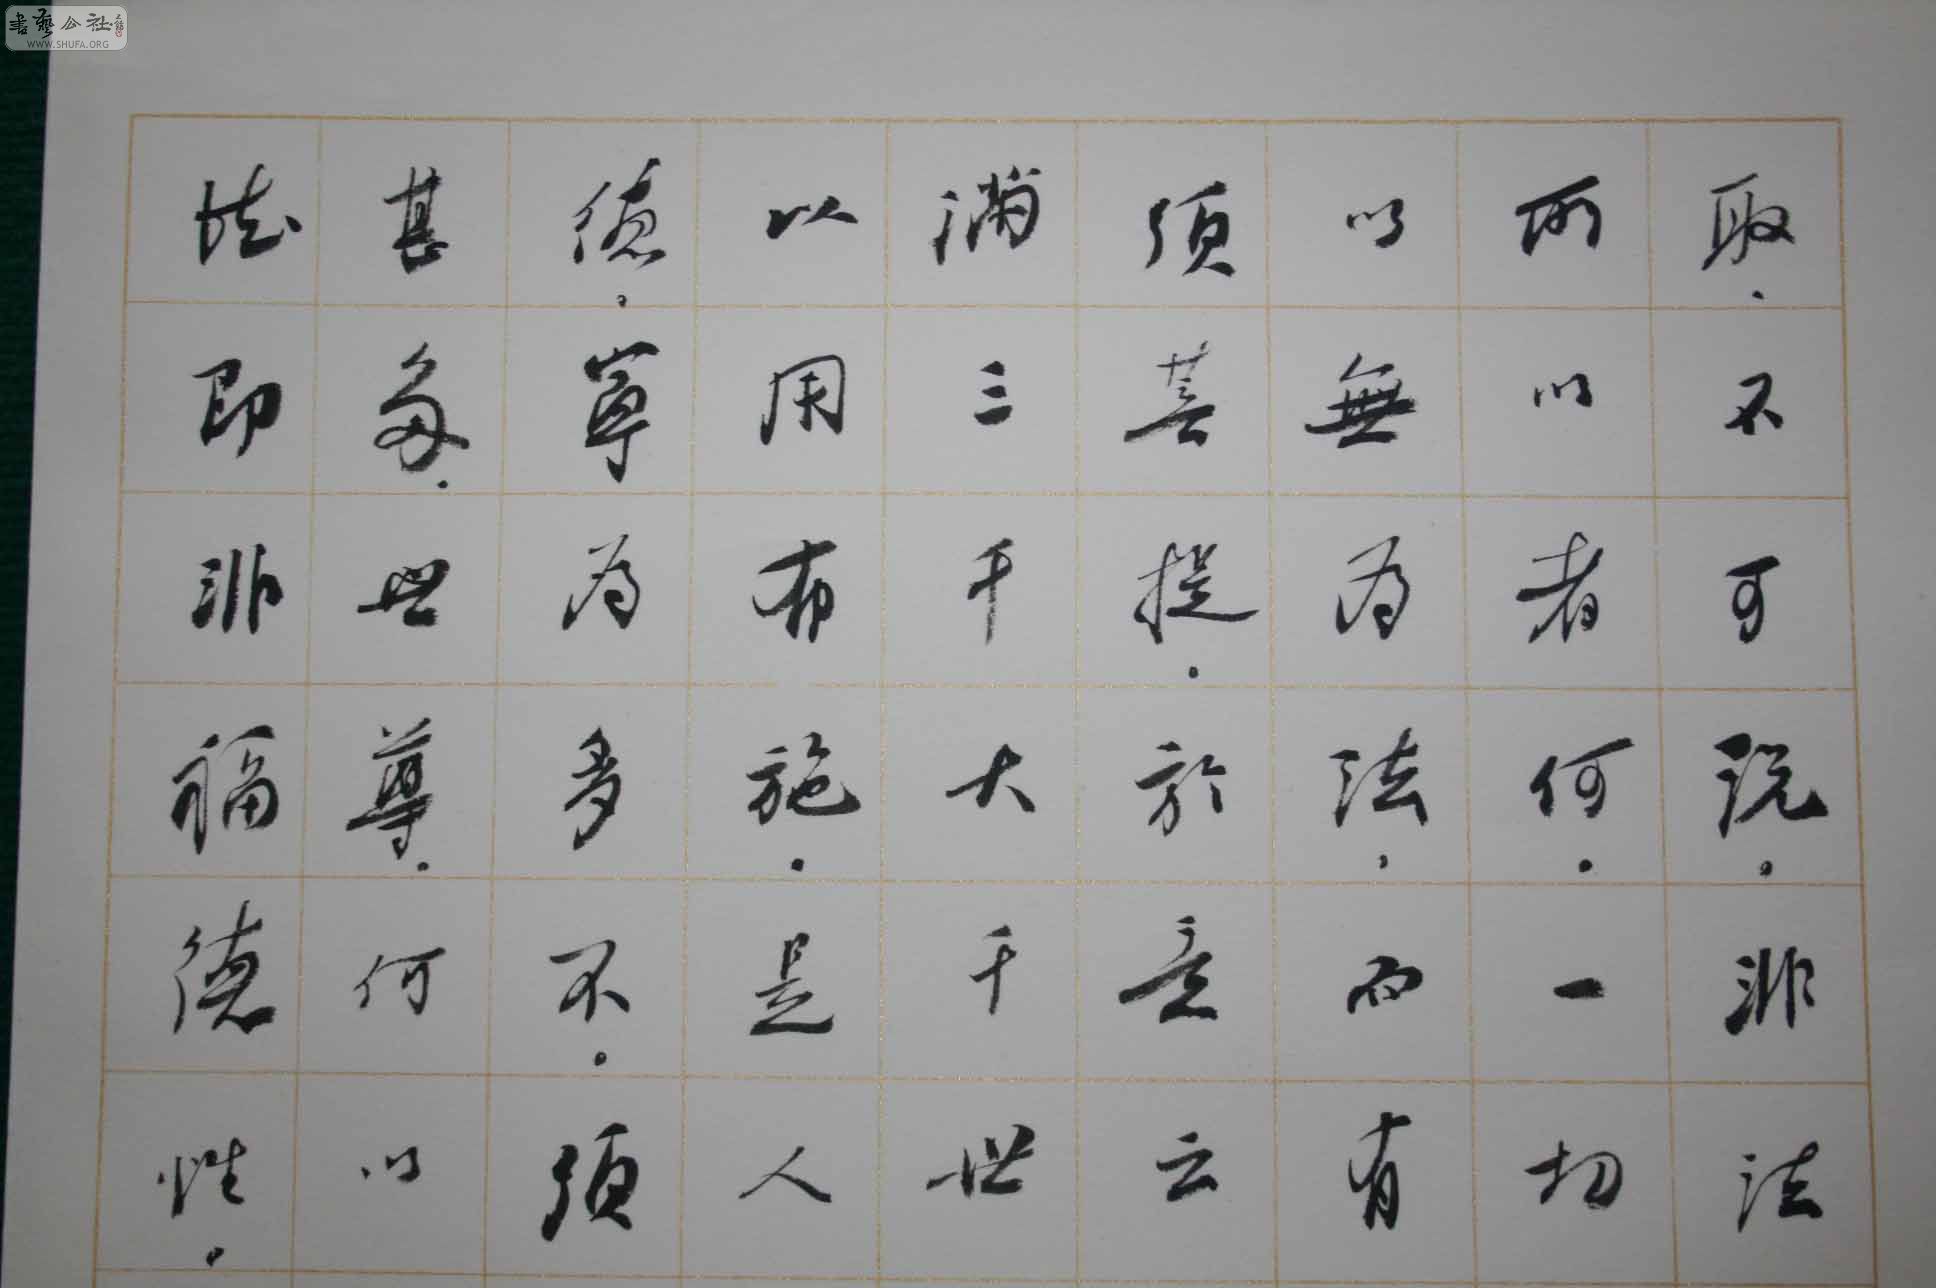 書藝公社
WWW.SHUFA.ORG
取、不可說。非法
所以者何。一切
以無為法，而有
須菩提。於意云
滿三千大千世
以用布施。是人
德。寧為多不。須
甚多。世尊。何以
德即非福德性。